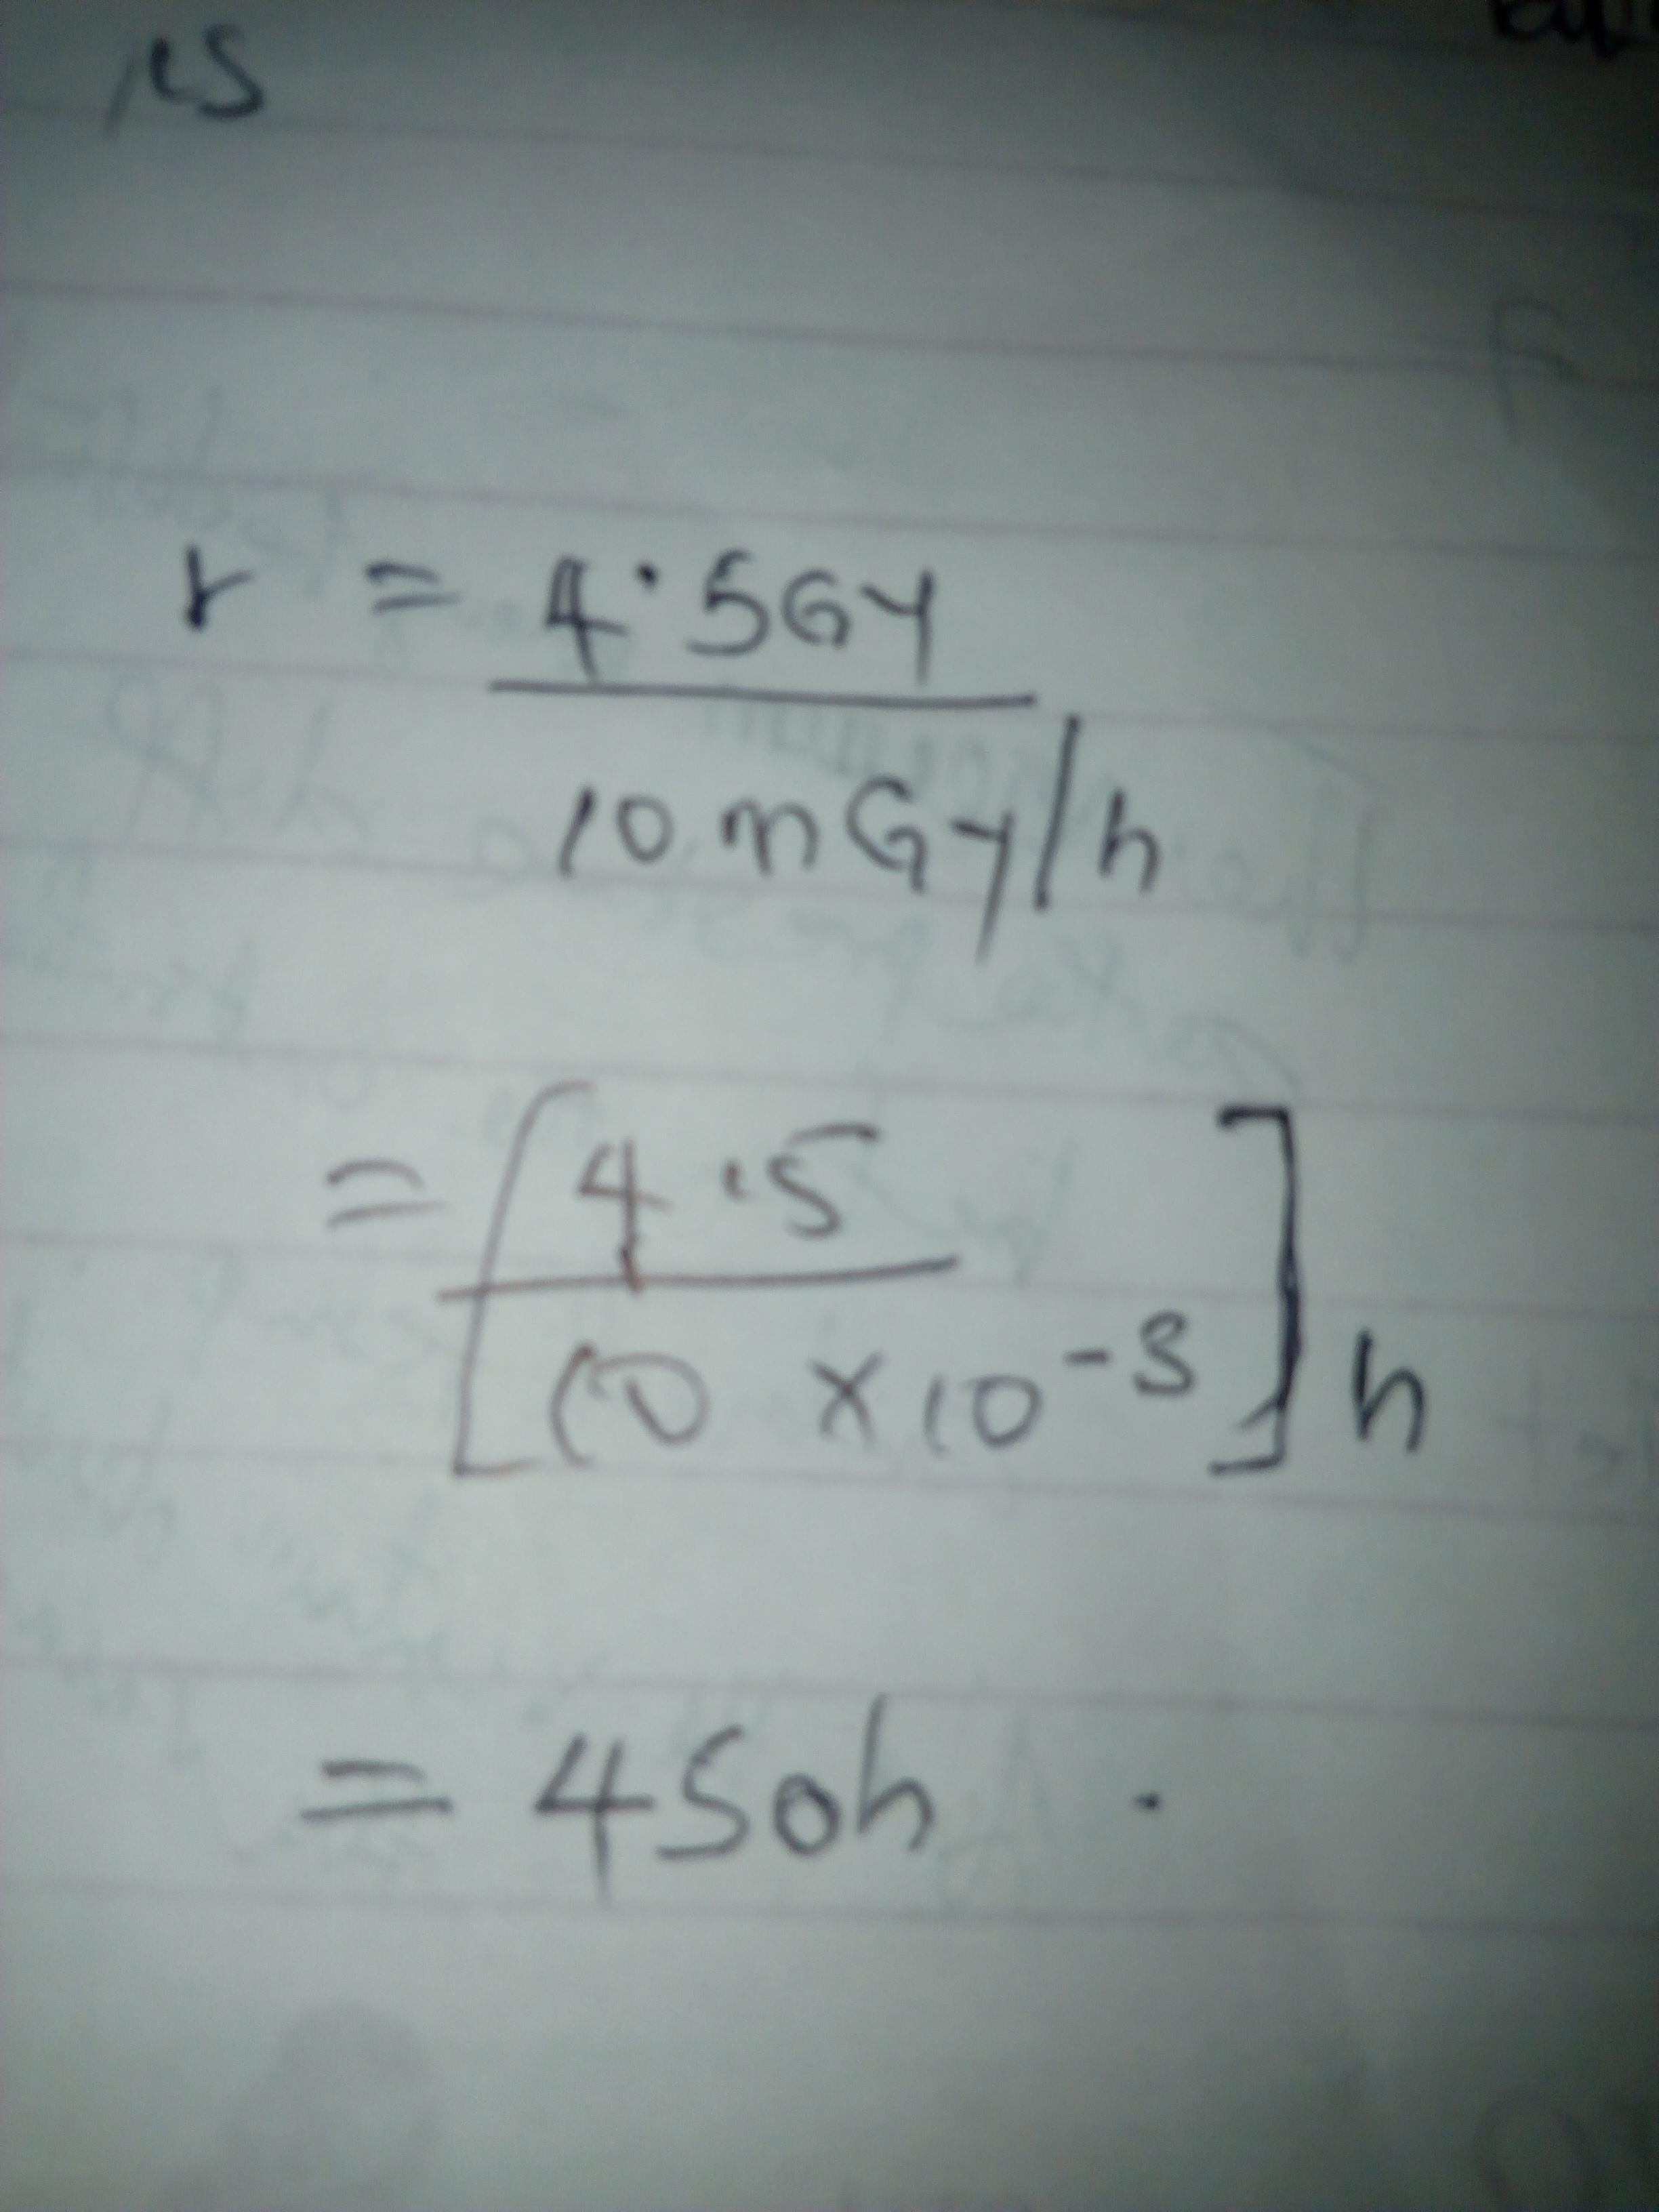 μs
r = 4.5Gy
10 mGy/h
= [4.5
10 × 10⁻³] h
= 450h .